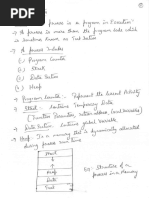 process is a program in Execution"
→ A process is more than the program code which
is sometimes known as Text Section
→ A process Includes
(1) Program Counter
(2) Stack
(3) Data Section
(4) Heap
→ Program Counter - Represent the Current Activity
→ Stack - contains Temporary Data
(Function Parameters, return address, local variables)
→ Data Section - contains global variable
→ Heap - It is a memory that is dynamically allocated
during process run time
Stack
↓
↑
Heap
Data
Text
Structure of a
process in a Memory